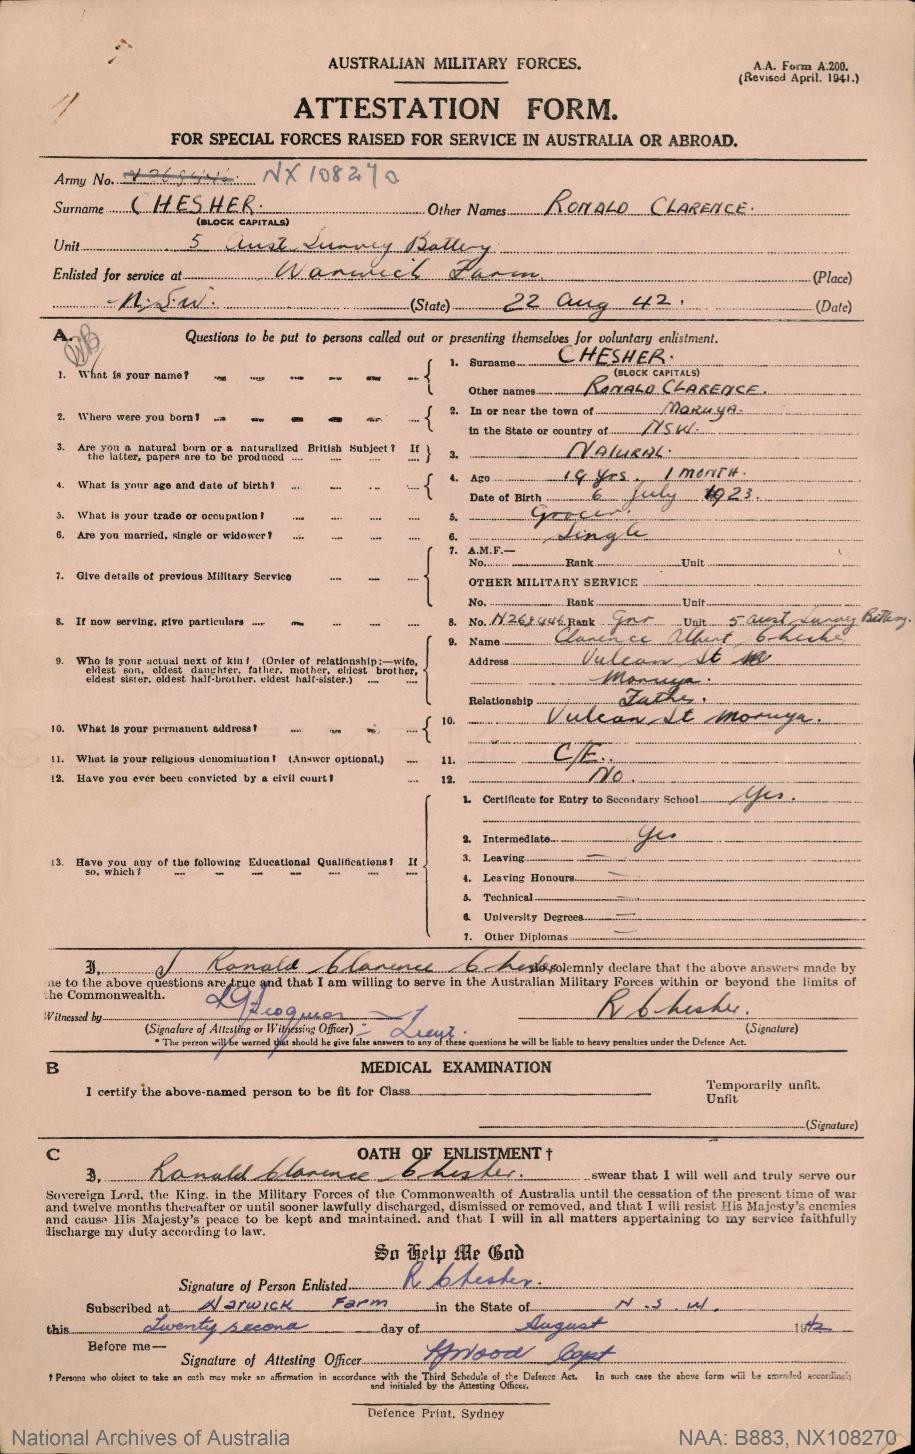 AUSTRALIAN MILITARY FORCES.
A.A. Form A.200.
(Revised April, 1941.)
ATTESTATION FORM.
FOR SPECIAL FORCES RAISED FOR SERVICE IN AUSTRALIA OR ABROAD.
Army No. N268446 NX108270
Surname CHESHER. Other Names RONALD CLARENCE.
(BLOCK CAPITALS)
Unit 5 Aust Survey Battery
Enlisted for service at Warwick Farm (Place)
N.S.W. (State) 22 Aug 42. (Date)
A. Questions to be put to persons called out or presenting themselves for voluntary enlistment.
1. What is your name? 1. Surname CHESHER.
(BLOCK CAPITALS)
Other names RONALD CLARENCE.
2. Where were you born? 2. In or near the town of MORUYA.
in the State or country of NSW.
3. Are you a natural born or a naturalized British Subject? If the latter, papers are to be produced 3. NATURAL.
4. What is your age and date of birth? 4. Age 19 yrs. 1 MONTH.
Date of Birth 6 July 1923.
5. What is your trade or occupation? 5. Grocer.
6. Are you married, single or widower? 6. Single
7. Give details of previous Military Service 7. A.M.F.—
No. Rank Unit
OTHER MILITARY SERVICE
No. Rank Unit
8. If now serving, give particulars 8. No. N268446 Rank Gnr Unit 5 Aust Survey Battery.
9. Who is your actual next of kin? (Order of relationship:—wife, eldest son, eldest daughter, father, mother, eldest brother, eldest sister, eldest half-brother, eldest half-sister.) 9. Name Clarence Albert Cheshe
Address Vulcan St
Moruya.
Relationship Father.
10. What is your permanent address? 10. Vulcan St Moruya.
11. What is your religious denomination? (Answer optional.) 11. C/E.
12. Have you ever been convicted by a civil court? 12. No.
13. Have you any of the following Educational Qualifications? If so, which?
1. Certificate for Entry to Secondary School Yes.
2. Intermediate Yes
3. Leaving —
4. Leaving Honours —
5. Technical —
6. University Degrees —
7. Other Diplomas —
I, I Ronald Clarence Chesher do solemnly declare that the above answers made by
me to the above questions are true and that I am willing to serve in the Australian Military Forces within or beyond the limits of
the Commonwealth.
Witnessed by R Chesher.
(Signature of Attesting or Witnessing Officer) Lieut. (Signature)
* The person will be warned that should he give false answers to any of these questions he will be liable to heavy penalties under the Defence Act.
B MEDICAL EXAMINATION
I certify the above-named person to be fit for Class Temporarily unfit.
Unfit
(Signature)
C OATH OF ENLISTMENT †
I, Ronald Clarence Chesher. swear that I will well and truly serve our
Sovereign Lord, the King, in the Military Forces of the Commonwealth of Australia until the cessation of the present time of war
and twelve months thereafter or until sooner lawfully discharged, dismissed or removed, and that I will resist His Majesty's enemies
and cause His Majesty's peace to be kept and maintained, and that I will in all matters appertaining to my service faithfully
discharge my duty according to law.
So Help Me God
Signature of Person Enlisted R Chesher.
Subscribed at Warwick Farm in the State of N.S.W.
this Twenty second day of August 1942
Before me—
Signature of Attesting Officer Wood Capt
† Persons who object to take an oath may make an affirmation in accordance with the Third Schedule of the Defence Act. In such case the above form will be amended accordingly
and initialed by the Attesting Officer.
Defence Print, Sydney
National Archives of Australia NAA: B883, NX108270